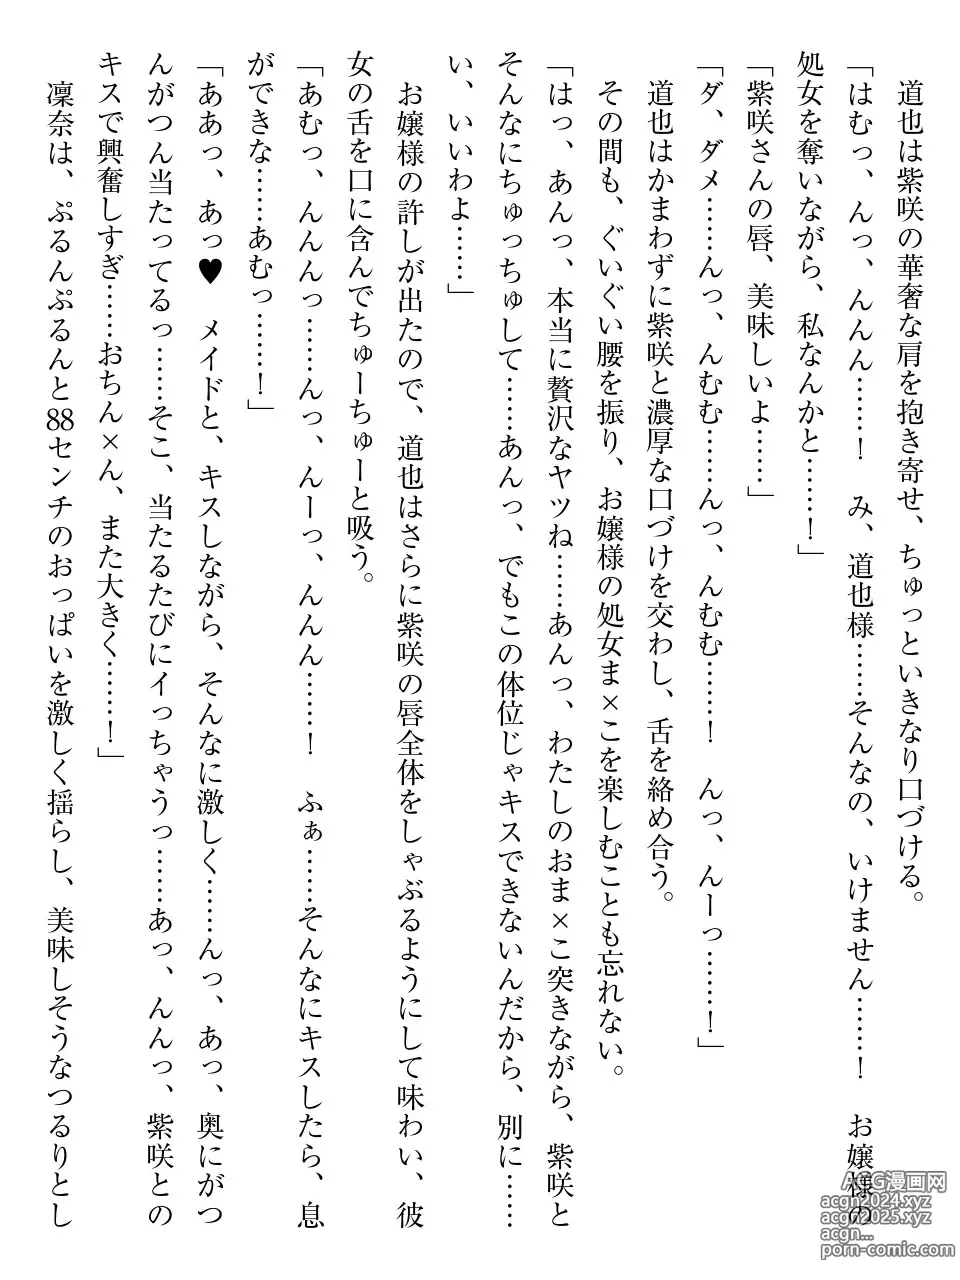 道也は紫咲の華奢な肩を抱き寄せ、ちゅっといきなり口づける。
「はむっ、んっ、んんん……！　み、道也様……そんなの、いけません……！　お嬢様の
処女を奪いながら、私なんかと……！」
「紫咲さんの唇、美味しいよ……」
「ダ、ダメ……んっ、んむむ……んっ、んむむ……！　んっ、んーっ……！」
道也はかまわずに紫咲と濃厚な口づけを交わし、舌を絡め合う。
その間も、ぐいぐい腰を振り、お嬢様の処女ま×こを楽しむことも忘れない。
「はっ、あんっ、本当に贅沢なヤツね……あんっ、わたしのおま×こ突きながら、紫咲と
そんなにちゅっちゅして……あんっ、でもこの体位じゃキスできないんだから、別に……
い、いいわよ……」
お嬢様の許しが出たので、道也はさらに紫咲の唇全体をしゃぶるようにして味わい、彼
女の舌を口に含んでちゅーちゅーと吸う。
「あむっ、んんんっ……んっ、んーっ、んんん……！　ふぁ……そんなにキスしたら、息
ができな……あむっ……！」
「ああっ、あっ♥　メイドと、キスしながら、そんなに激しく……んっ、あっ、奥にがつ
んがつん当たってるっ……そこ、当たるたびにイっちゃうっ……あっ、んんっ、紫咲との
キスで興奮しすぎ……おちん×ん、また大きく……！」
凜奈は、ぷるんぷるんと88センチのおっぱいを激しく揺らし、美味しそうなつるりとし
ACG漫画网
acgn2024.xyz
acgn2025.xyz
acgn...
porn-comic.com